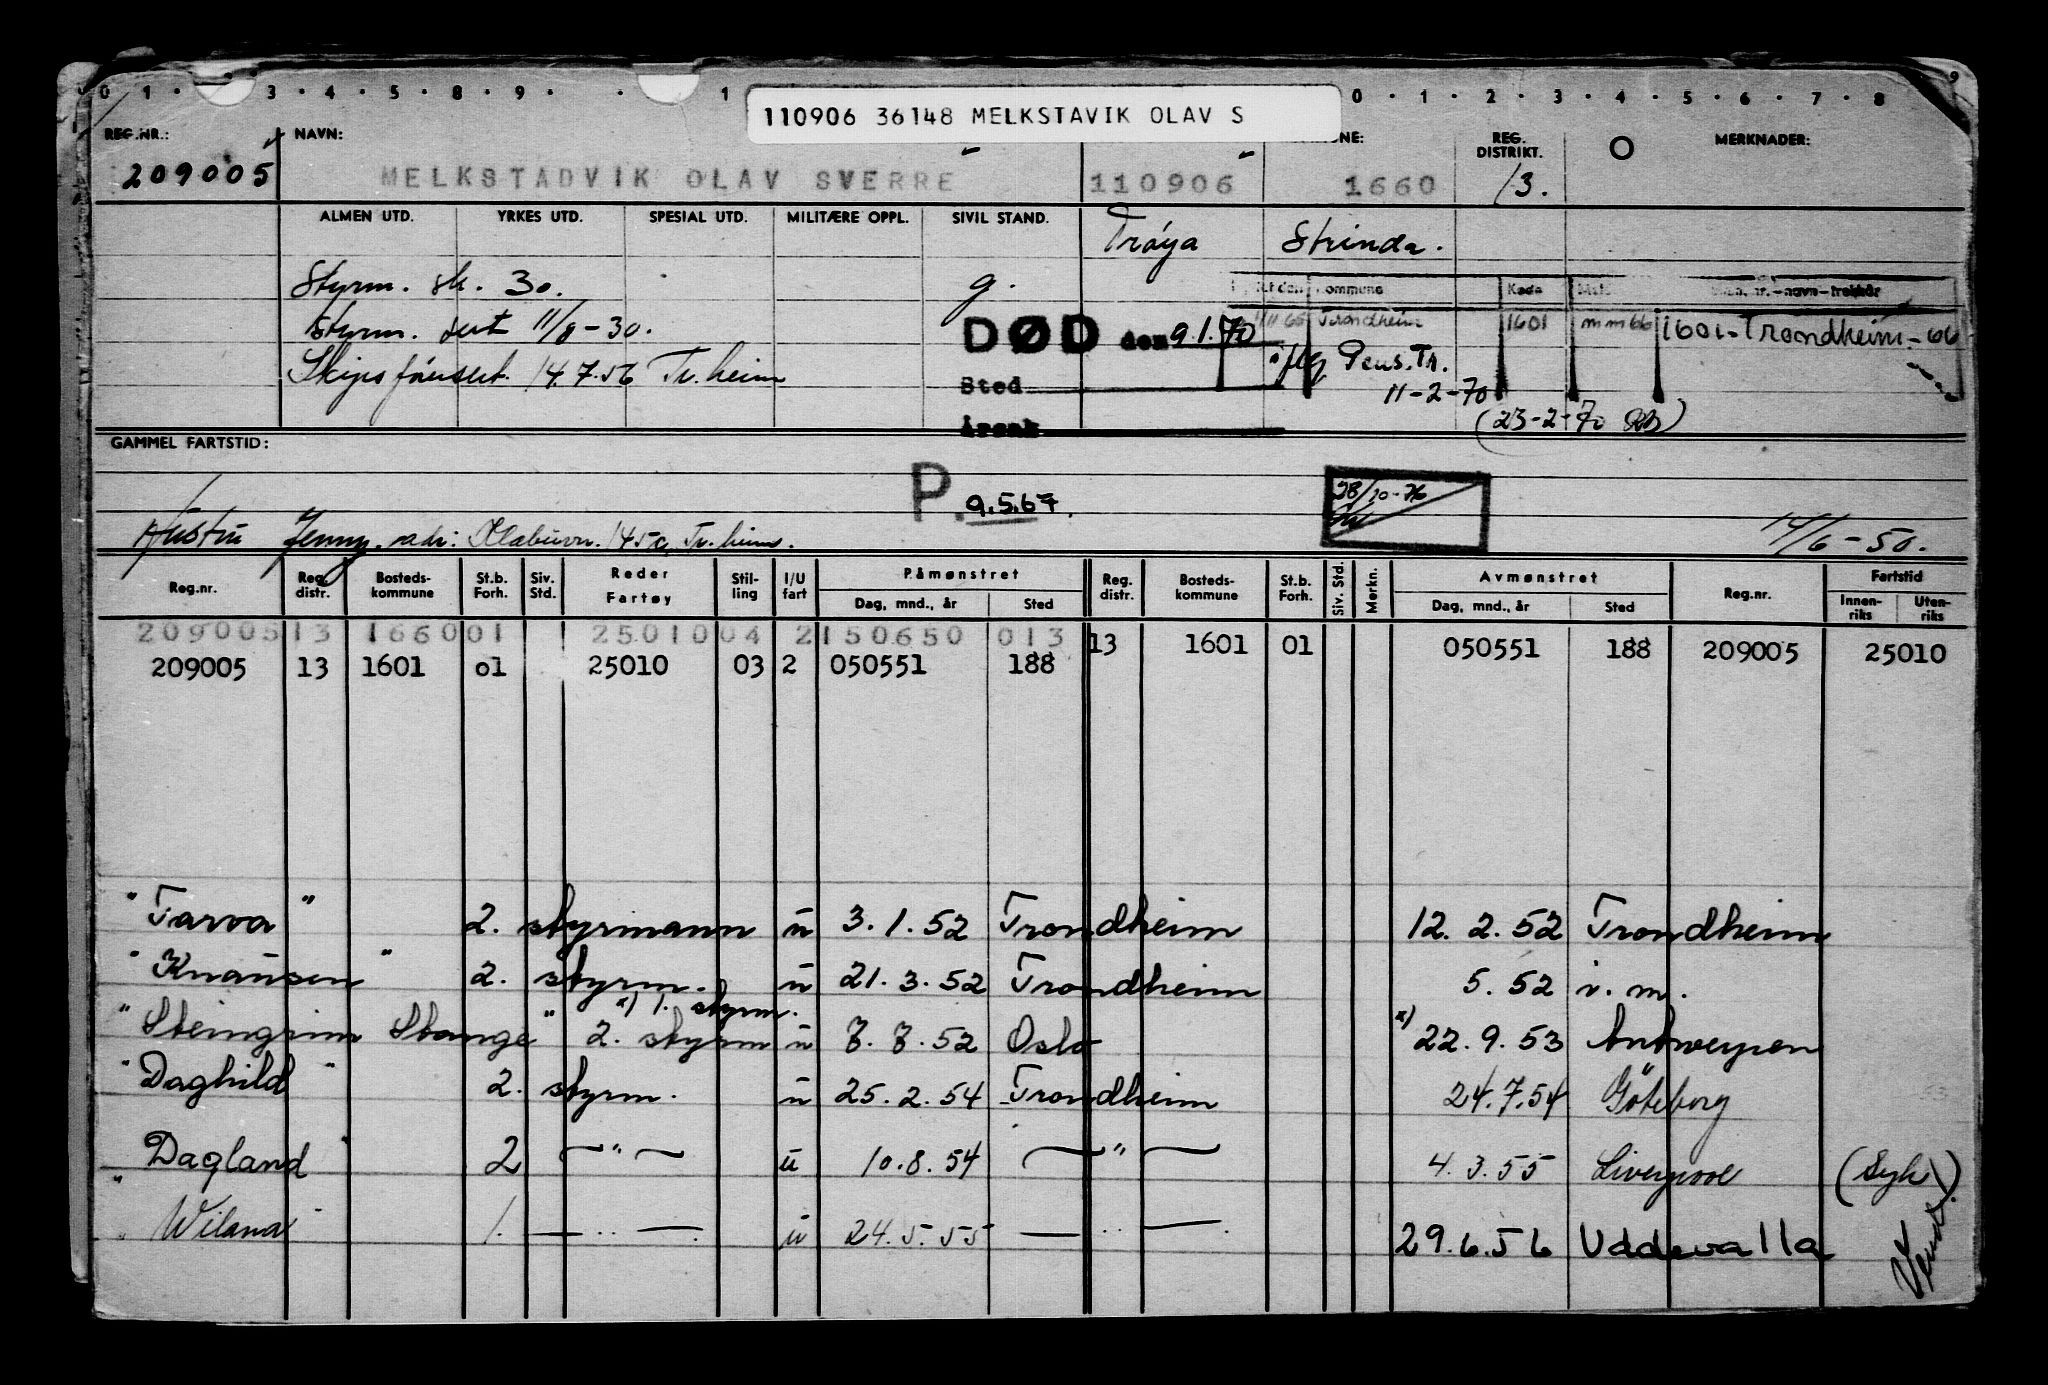 0 1 · · 3 · 4 · 5 · 8 · 9 · · 1 0 · 1 · 2 · 3 · 4 · 5 · 6 · 7 · 8 9
110906 36148 MELKSTAVIK OLAV S
REG.NR.: NAVN: NE: REG. DISTRIKT. O MERKNADER:
209005 MELKSTADVIK OLAV SVERRE 110906 1660 13.
ALMEN UTD. YRKES UTD. SPESIAL UTD. MILITÆRE OPPL. SIVIL STAND. Frøya Strinda.
Styrm. sk. 30. g.
Kommune Kode Mld. nr.-navn-trekkår
styrm. sert 11/8-30. DØD den 9.1.70 1/11 65 Trondheim 1601 mm66 1601-Trondheim-66
Skipsførersert. 14.7.56 Tr.heim Sted iflg Pens.Tr.
11-2-70
Årsak (23-2-70)
GAMMEL FARTSTID:
P. 9.5.67. 28/10-76
Hustru Jenny. adr: Klæbuvn. 145c, Tr.heim. 14/6-50.
Reg.nr. Reg. distr. Bosteds-kommune St.b. Forh. Siv. Std. Reder Fartøy Stil-ling I/U fart Påmønstret Dag, mnd., år Sted Reg. distr. Bosteds-kommune St.b. Forh. Siv. Std. Merkn. Avmønstret Dag, mnd., år Sted Reg.nr. Fartstid Innen-riks Uten-riks
209005 13 1660 01 25010 04 2 150650 013 13 1601 01 050551 188 209005 25010
209005 13 1601 01 25010 03 2 050551 188
"Tarva" 2. styrmann u 3.1.52 Trondheim 12.2.52 Trondheim
"Knausen" 2. styrm. u 21.3.52 Trondheim 5.52 i.m.
x) 1. styrm.
"Steingrim Stange" 2. styrm u 7.7.52 Oslo x) 22.9.53 Antwerpen
"Daghild" 2. styrm. u 25.2.54 Trondheim 24.7.54 Göteborg
"Dagland" 2 — " — u 10.8.54 — " — 4.3.55 Liverpool (Syk)
"Wilana" 1. — " — u 24.5.55 — " — 29.6.56 Uddevalla
Vend!